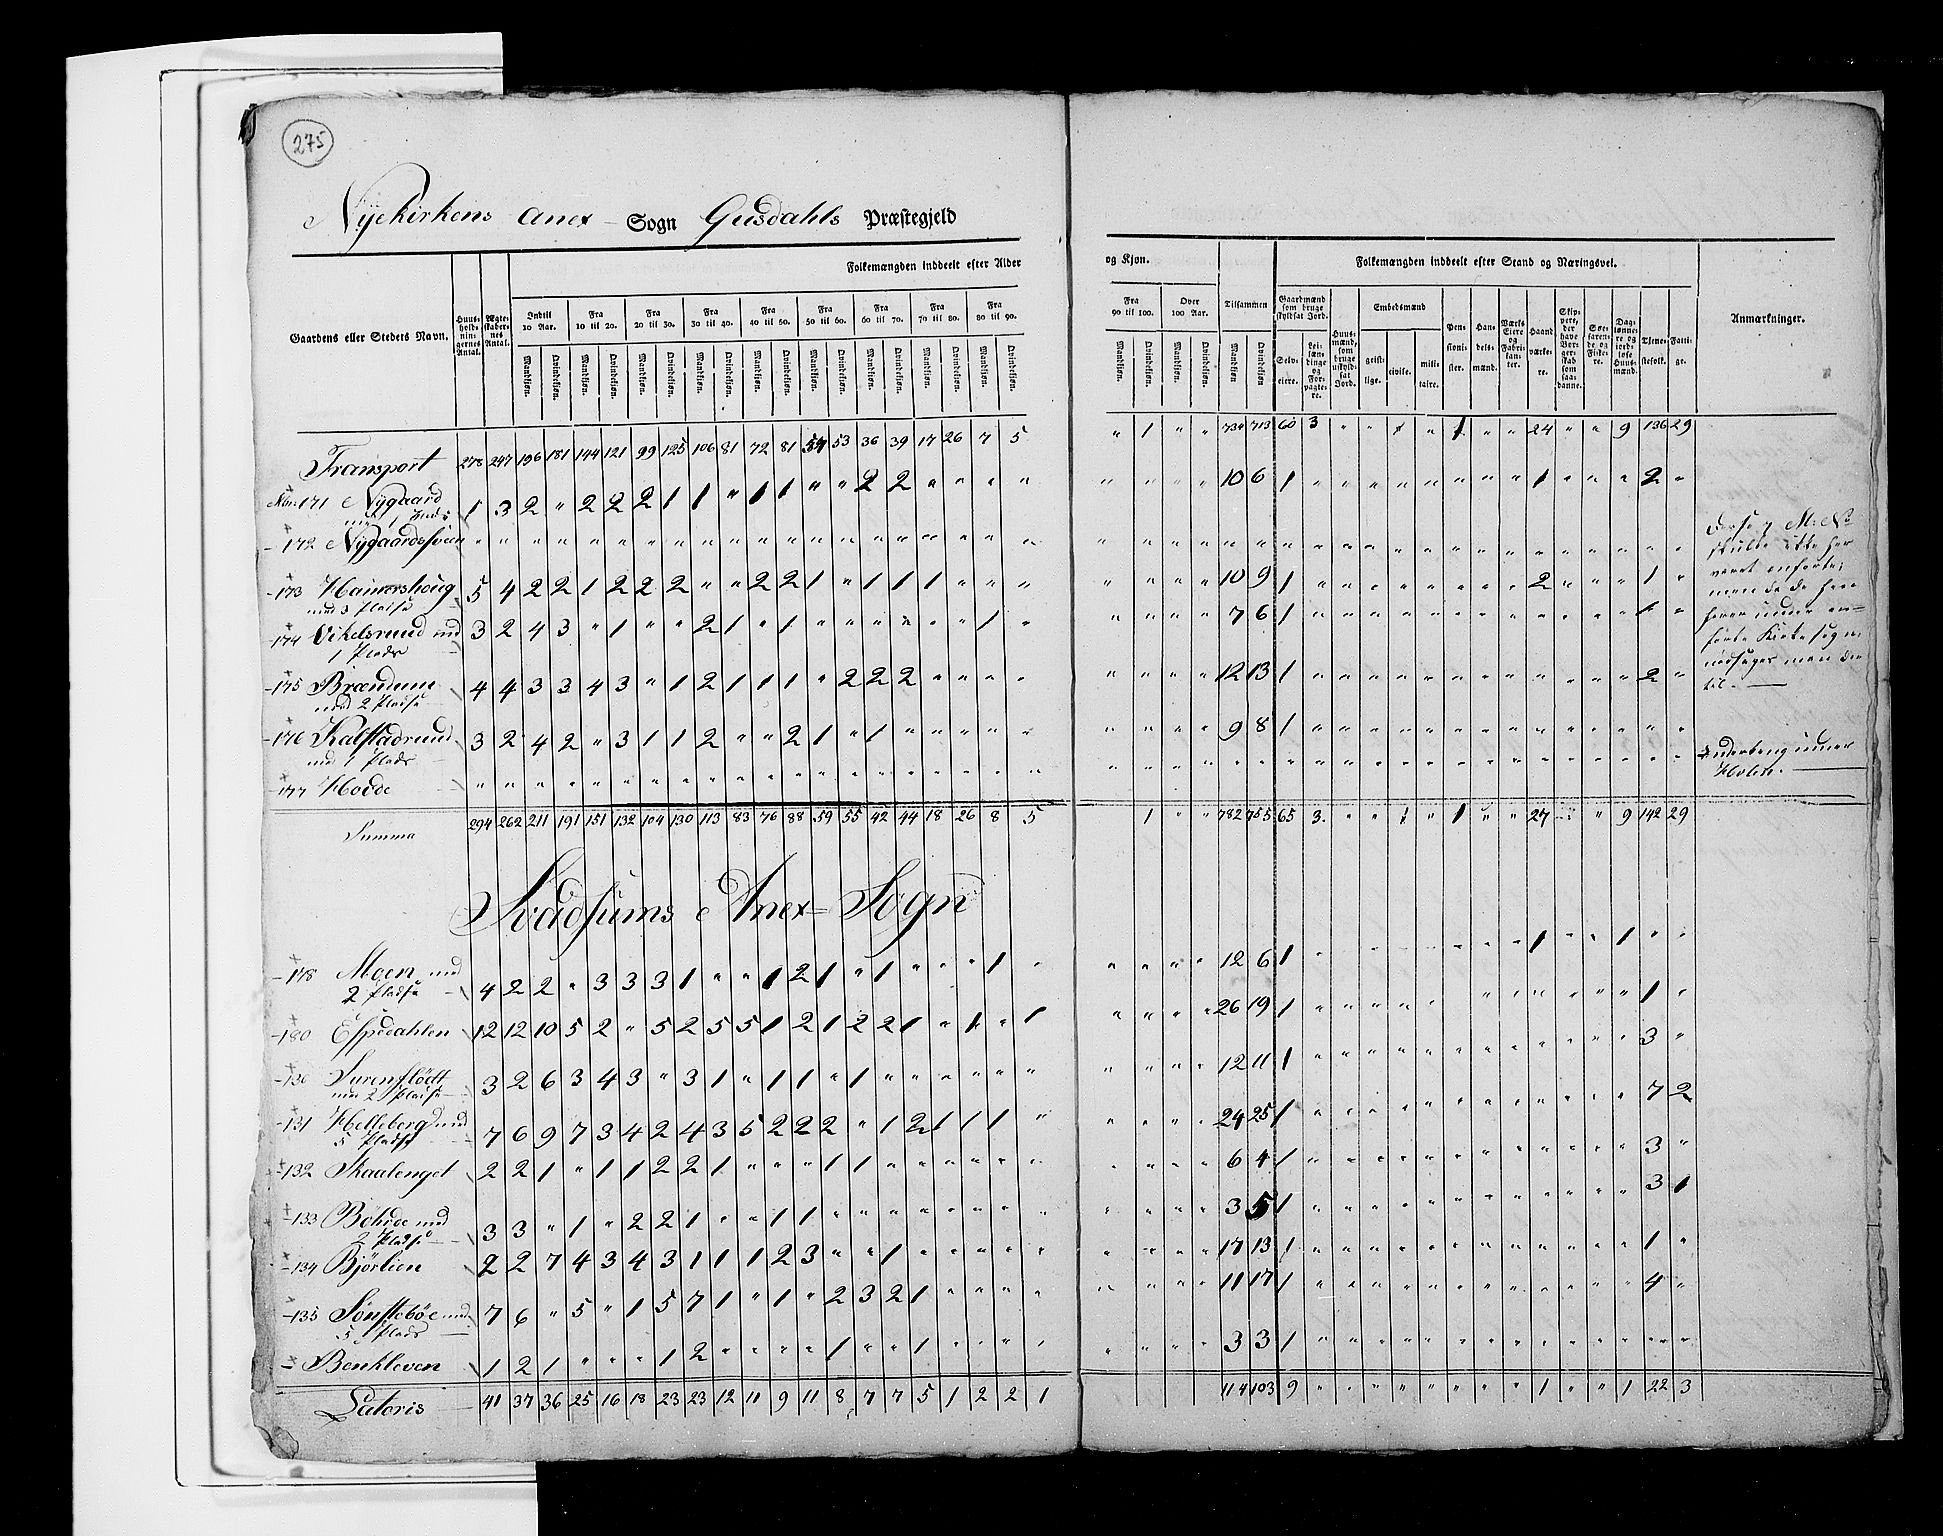 275
Nÿekirkens Anex Sogn Gusdahls Præstegjeld
Gaardens eller Stedets Navn.
Huusholdningernes Antal.
Ægteskabernes Antal.
Folkemængden inddeelt efter Alder
Indtil 10 Aar.
Fra 10 til 20.
Fra 20 til 30.
Fra 30 til 40.
Fra 40 til 50.
Fra 50 til 60.
Fra 60 til 70.
Fra 70 til 80.
Fra 80 til 90.
Mandkjøn. Qvindekjøn. Mandkjøn. Qvindekjøn. Mandkjøn. Qvindekjøn. Mandkjøn. Qvindekjøn. Mandkjøn. Qvindekjøn. Mandkjøn. Qvindekjøn. Mandkjøn. Qvindekjøn. Mandkjøn. Qvindekjøn. Mandkjøn. Qvindekjøn.
og Kjøn.
Fra 90 til 100.
Over 100 Aar.
Mandkjøn. Qvindekjøn. Mandkjøn. Qvindekjøn.
Tilsammen
Mandkjøn. Qvindekjøn.
Folkemængden inddeelt efter Stand og Næringsvei.
Gaardmænd som bruge skyldsat Jord.
Selveiere.
Leilændinge og Forpagtere.
Huusmænd, som bruge uskyldsat Jord.
Embedsmænd
geistlige. civile. militaire.
Pensionister.
Handelsmænd.
Værks Eiere og Fabrikanter.
Haandværkere.
Skippere, der have Borgerskab som saadanne.
Søefarende og Fiskere.
Daglønnere og jordløse Huusmænd.
Tjenestefolk.
Fattige.
Anmærkninger.
Transport 278 247 196 181 144 121 99 125 106 81 72 81 54 53 36 39 17 26 7 5 " 1 " " 734 713 60 3 " " 1 " 1 " " 24 " " 9 136 29
171 Nygaard 1 3 2 " 2 2 2 1 1 " 1 1 " " 2 2 " " " " " " " " 10 6 1 " " " " " " " " 1 " " " 2 "
med 1 Plads
172 Nygaardssveen " " " " " " " " " " " " " " " " " " " " " " " " " " " " " " " " " " " " " " " " "
173 Hamershoug 5 4 2 2 1 2 2 2 " " 2 2 1 " 1 1 1 " " " " " " " 10 9 1 " " " " " " " " 2 " " " 1 "
med 3 Pladse
174 Vikelsruud md 3 2 4 3 " 1 " " 2 1 " 1 " " " " " " 1 " " " " " 7 6 1 " " " " " " " " " " " " 1 "
1 Plads
175 Brændum 4 4 3 3 4 3 " 1 2 1 1 1 " 2 2 2 " " " " " " " " 12 13 1 " " " " " " " " " " " " 2 "
med 2 Pladse
176 Kalstadruud 3 2 4 2 " 3 1 1 2 " " 2 1 " 1 " " " " " " " " " 9 8 1 " " " " " " " " " " " " " "
md 1 Plads
177 Hovde " " " " " " " " " " " " " " " " " " " " " " " " " " " " " " " " " " " " " " " " "
skulde ikke her
været anførte;
Kirkesogn
til.
Holen.
Summa 294 262 211 191 151 132 104 130 113 83 76 88 59 55 42 44 18 26 8 5 1 " " 782 755 65 3 " " 1 " 1 " " 27 " " 9 142 29
Svadsums Anex-Sogn
178 Moen md 4 2 2 " 3 3 3 1 " " 1 2 1 " 1 " " " 1 " " " " " 12 6 1 " " " " " " " " 1 " " 1 " "
2 Pladse
180 Espedahlen 12 12 10 5 2 " 5 2 5 5 1 2 1 2 2 1 " 1 " 1 " " " " 26 19 1 " " " " " " " " " " 1 "
130 Surenflödt 3 2 6 3 4 3 " 3 1 " 1 1 " 1 " " " " " " " " " " 12 11 1 " " " " " " " " " " " " 3 "
med 2 Pladse
131 Helleberg md 7 6 9 7 3 4 2 4 3 5 2 2 2 " 1 2 1 1 1 " " " " " 24 25 1 " " " " " " " " " " " " 7 2
5 Pladse
132 Skaalenget 2 2 1 " 1 1 2 2 1 " " " 1 1 " " " " " " " " " " 6 4 1 " " " " " " " " " " " " 3 "
133 Bohde md 3 3 " 1 " 2 2 1 " " 1 1 " " " " " " " " " " " " 3 5 1 " " " " " " " " " " " " 3 1
2 Pladse
134 Bjørlien 2 2 7 4 3 4 3 1 1 1 2 3 " " 1 " " " " " " " " " 17 13 1 " " " " " " " " " " " " 1 "
135 Sønstebøe md 7 6 " 5 " 1 5 7 1 " 1 " 2 3 2 1 " " " " " " " " 11 17 1 " " " " " " " " " " " " 4 "
5 Plads
Benkleven 1 2 1 " " " 1 2 " " " " 1 " " 1 " " " " " " " " 3 3 1 " " " " " " " " " " " " " "
Lateris 41 37 36 25 16 18 23 23 12 11 9 11 8 7 7 5 1 2 2 1 114 103 9 " " " " " " " " 1 " " 1 22 3